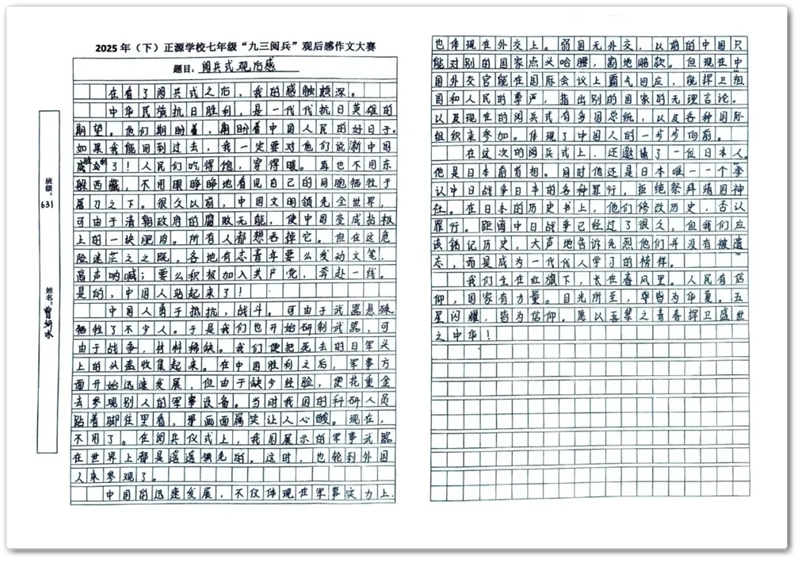 2025年（下）正源学校七年级“九三阅兵”观后感作文大赛
题目：阅兵式观后感
班级：631
姓名：
在看了阅兵式之后，我的感触颇深。
中华民族抗日胜利，是一代代抗日英雄的
期望。他们期盼着，期盼着中国人民的好日子。
如果我能回到过去，我一定要对他们说新中国
成立了！人民们吃得饱，穿得暖。再也不用东
躲西藏，不用眼睁睁地看见自己的同胞牺牲于
屠刀之下。很久以前，中国文明领先全世界，
可由于清朝政府的腐败无能，使中国变成砧板
上的一块肥肉。所有人都想吞掉它。但在这危
险迷茫之之际，各地有志青年要么发动文笔，
高声呐喊；要么积极加入共产党，奔赴一线。
是的，中国人站起来了！
中国人勇于抵抗，战斗。可由于武器悬殊
牺牲了不少人。于是我们也开始研制武器，可
由于战争，材料稀缺。我们便把死去的日军头
上的头盔收集起来。在中国胜利之后，军事方
面开始迅速发展，但由于缺少经验，便花重金
去参观别人的军事设备。当时我国的科研人员
踮着脚往里看，那画面属实让人心酸。现在，
不用了。在阅兵仪式上，我国展示的军事武器
在世界上都是遥遥领先的。这时，也轮到外国
人来参观了。
中国的迅速发展，不仅体现在军事实力上，
也体现在外交上。弱国无外交，以前的中国只
能对别的国家点头哈腰，割地赔款。但现在中
国外交官能在国际会议上霸气回应，能捍卫祖
国和人民的尊严，指出别的国家的无理言论。
以及现在的阅兵式有多国总统，以及各种国际
组织来参加。体现了中国人的一步步向前。
在这次的阅兵式上，还邀请了一位日本人。
他是日本前首相。同时他还是日本唯一一个承
认中日战争日本的各种罪行，拒绝祭拜靖国神
社。在日本的历史书上，他们修改历史，否认
罪行。距离中日战争已经过了很久，但我们应
该铭记历史，大声地告诉先烈他们并没有被遗
忘，而是成为一代代人学习的榜样。
我们生在红旗下，长在春风里。人民有信
仰，国家有力量。目光所至，皆为华夏。五
星闪耀，皆为信仰。愿以吾辈之青春捍卫盛世
之中华！